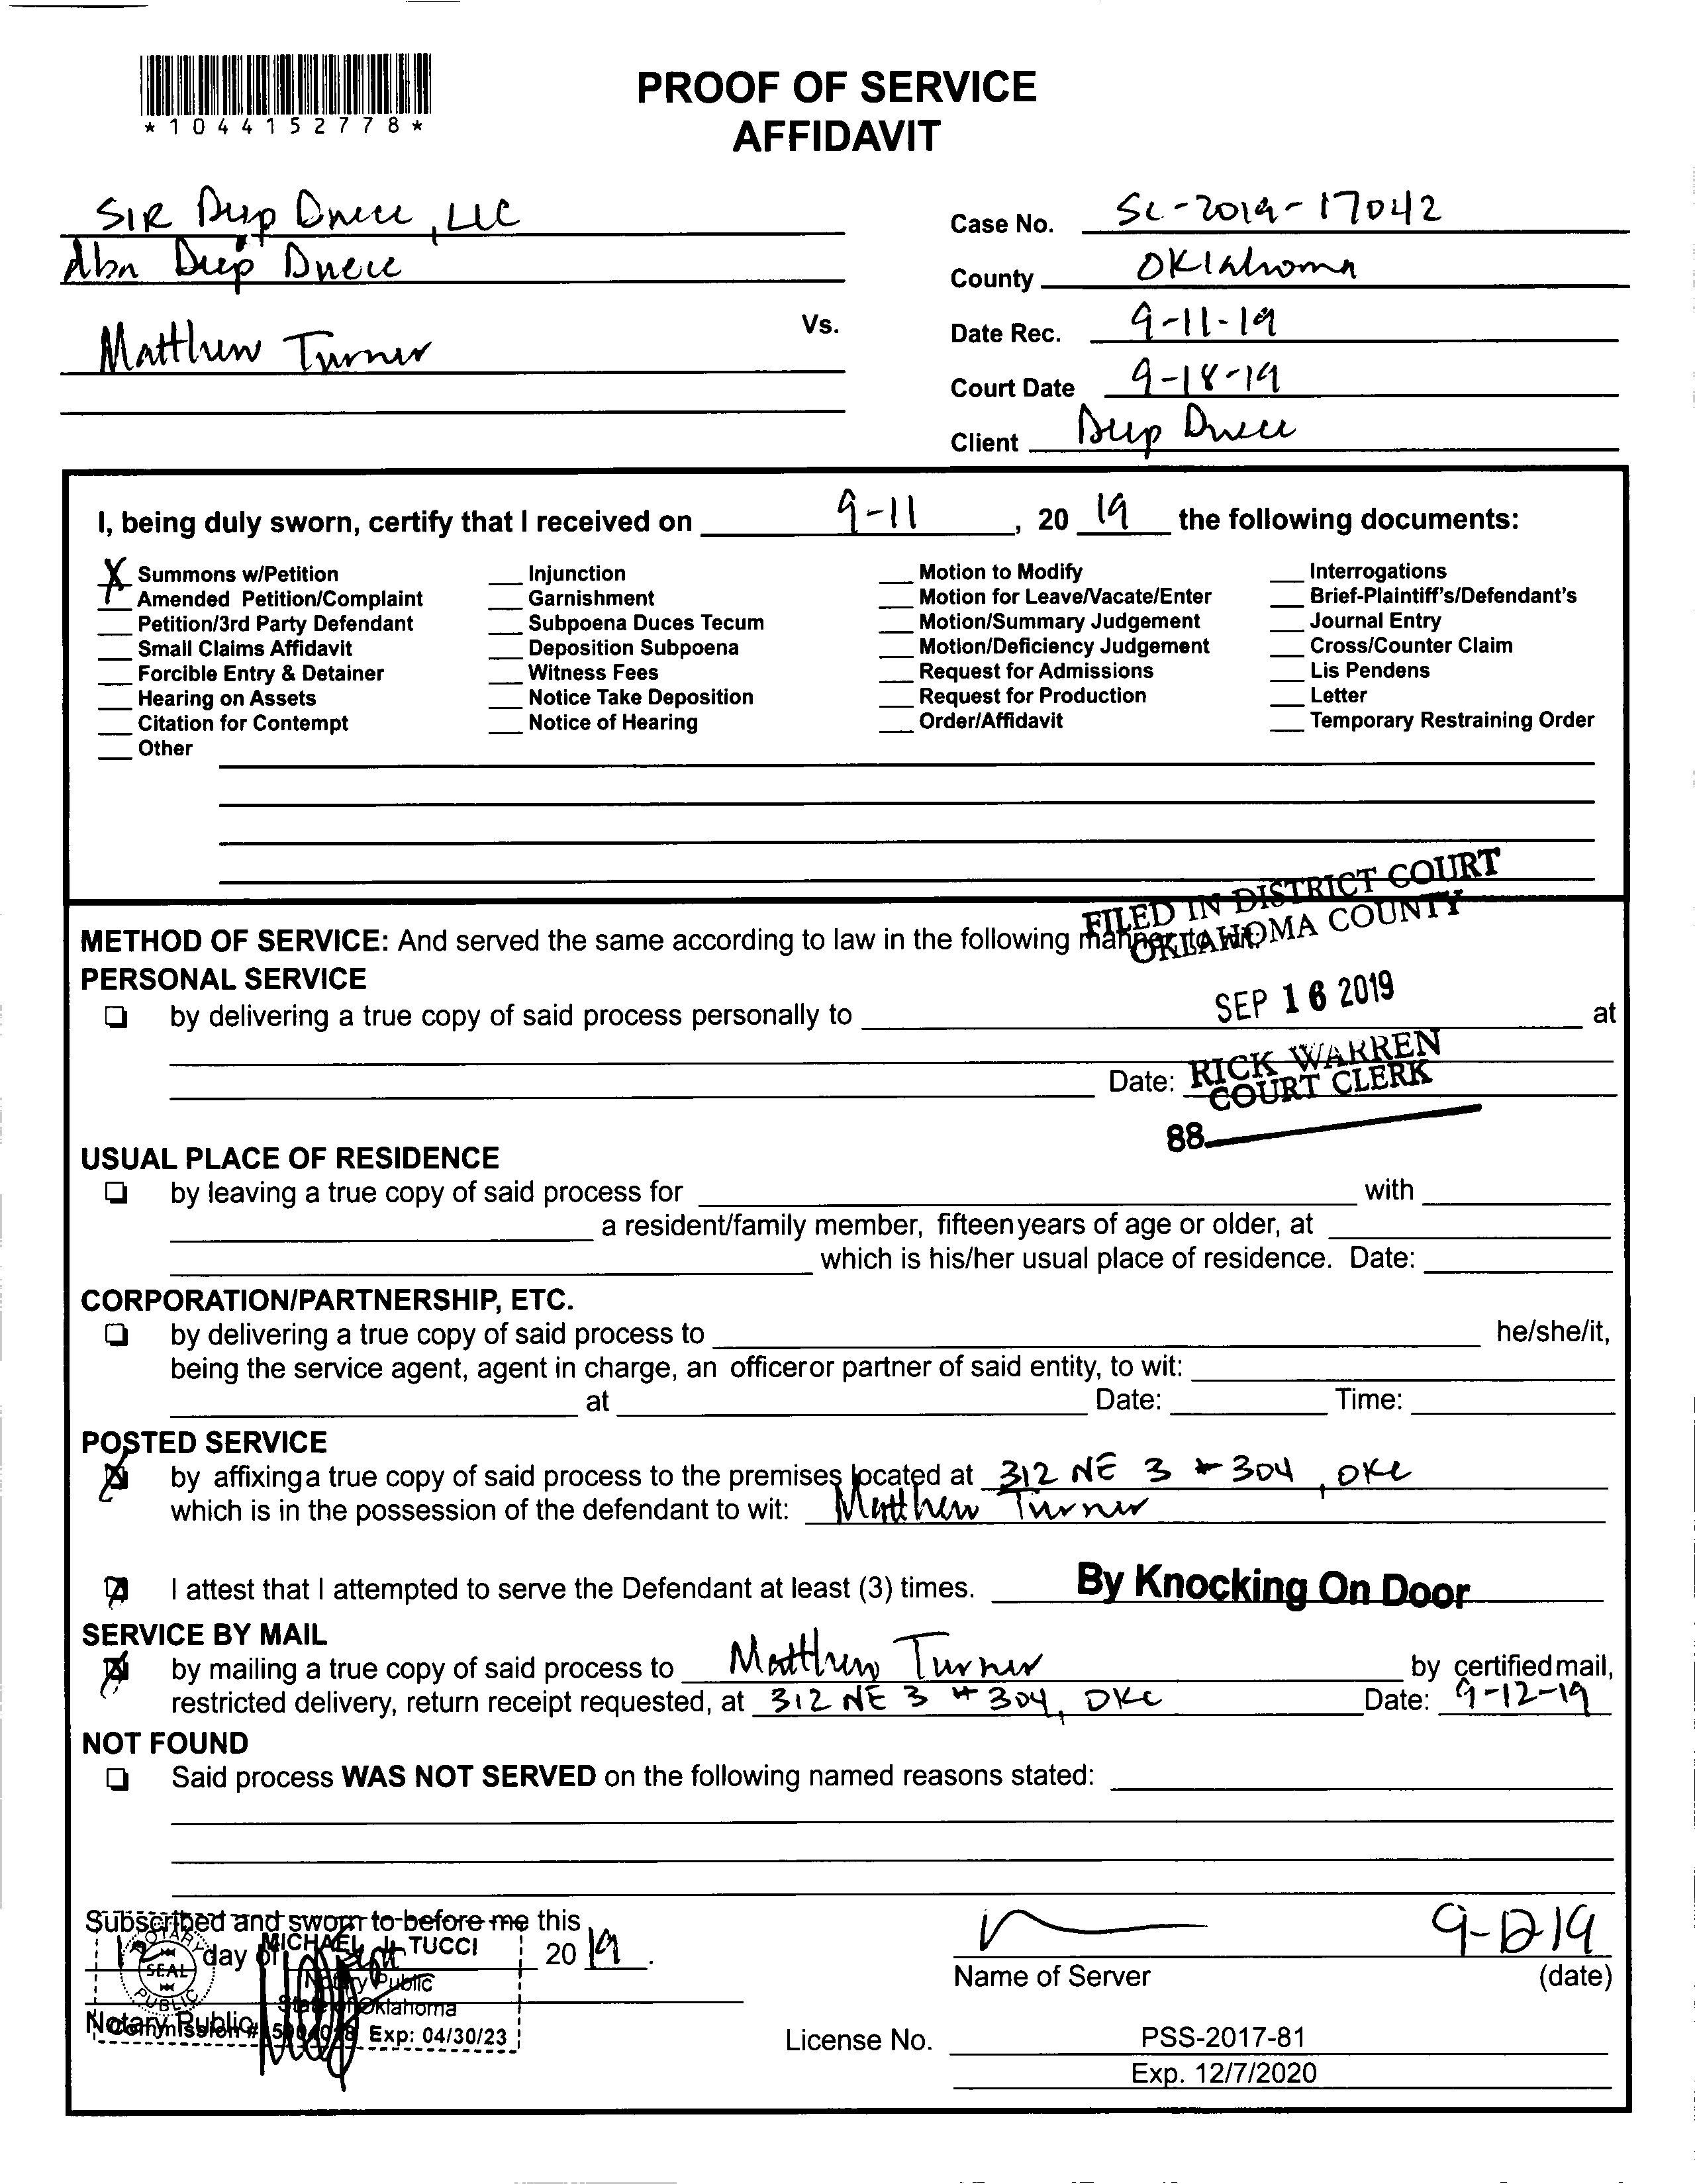 *1044152778*
PROOF OF SERVICE
AFFIDAVIT
SIR Deep Deuce, LLC
dba Deep Deuce
Vs.
Matthew Turner
Case No. SC-2019-17042
County Oklahoma
Date Rec. 9-11-19
Court Date 9-18-19
Client Deep Deuce
I, being duly sworn, certify that I received on 9-11, 20 19 the following documents:
X Summons w/Petition
Amended Petition/Complaint
Petition/3rd Party Defendant
Small Claims Affidavit
Forcible Entry & Detainer
Hearing on Assets
Citation for Contempt
Other
Injunction
Garnishment
Subpoena Duces Tecum
Deposition Subpoena
Witness Fees
Notice Take Deposition
Notice of Hearing
Motion to Modify
Motion for Leave/Vacate/Enter
Motion/Summary Judgement
Motion/Deficiency Judgement
Request for Admissions
Request for Production
Order/Affidavit
Interrogations
Brief-Plaintiff's/Defendant's
Journal Entry
Cross/Counter Claim
Lis Pendens
Letter
Temporary Restraining Order
FILED IN DISTRICT COURT
OKLAHOMA COUNTY
METHOD OF SERVICE: And served the same according to law in the following manner, to wit:
PERSONAL SERVICE
SEP 16 2019
by delivering a true copy of said process personally to at
RICK WARREN
COURT CLERK
Date:
88
USUAL PLACE OF RESIDENCE
by leaving a true copy of said process for with
a resident/family member, fifteen years of age or older, at
which is his/her usual place of residence. Date:
CORPORATION/PARTNERSHIP, ETC.
by delivering a true copy of said process to he/she/it,
being the service agent, agent in charge, an officer or partner of said entity, to wit:
at Date: Time:
POSTED SERVICE
by affixing a true copy of said process to the premises located at 312 NE 3 # 304, OKC
which is in the possession of the defendant to wit: Matthew Turner
I attest that I attempted to serve the Defendant at least (3) times. By Knocking On Door
SERVICE BY MAIL
by mailing a true copy of said process to Matthew Turner by certified mail,
restricted delivery, return receipt requested, at 312 NE 3 # 304, OKC Date: 9-12-19
NOT FOUND
Said process WAS NOT SERVED on the following named reasons stated:
Subscribed and sworn to before me this
12 day of Sept 20 19.
MICHAEL J. TUCCI
Notary Public
State of Oklahoma
NOTARY SEAL PUBLIC
Notary Public
Commission # Exp: 04/30/23
9-12-19
Name of Server (date)
License No. PSS-2017-81
Exp. 12/7/2020